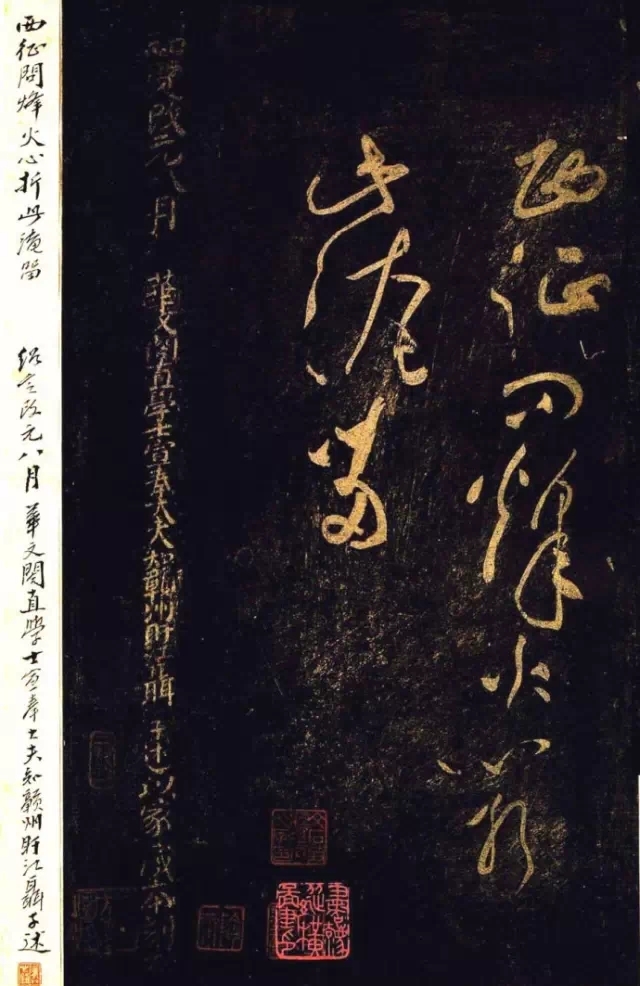 西征问烽火心折
此淹留
紹定改元八月 華文閣直學士宣奉大夫知贛州盱江聶子述以家藏本刻
西征問烽火心折此淹留
紹定改元八月華文閣直學士宣奉大夫知贛州盱江聶子述